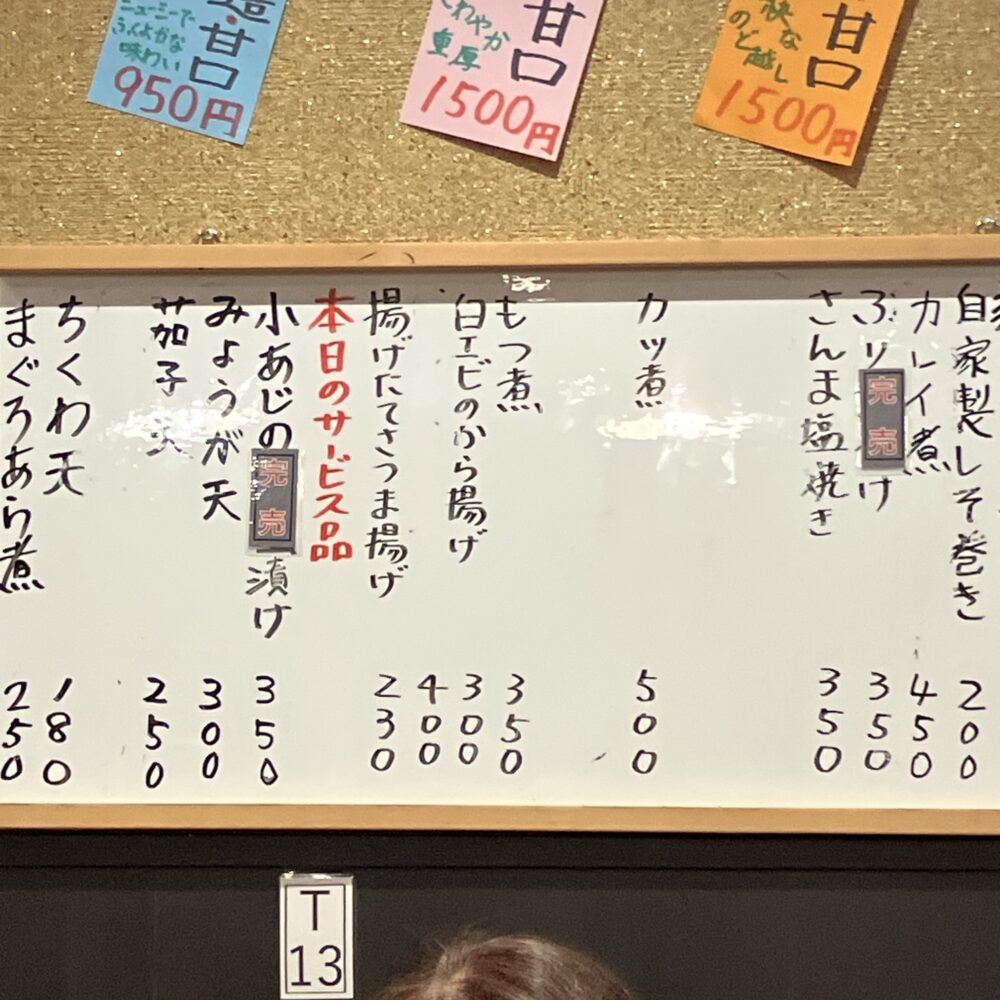 甘口
ニューミーで
ふくよかな
味わい
950円
甘口
重厚
1500円
甘口
快な
のど越し
1500円
自家製しそ巻き 200
カレイ煮 450
ぶり 完売 け 350
さんま塩焼き 350
カツ煮 500
もつ煮 350
白エビのから揚げ 300
400
揚げたてさつま揚げ 230
本日のサービス品
小あじの 完売 漬け 350
みょうが天 300
茄子天 250
ちくわ天 180
まぐろあら煮 250
T
13